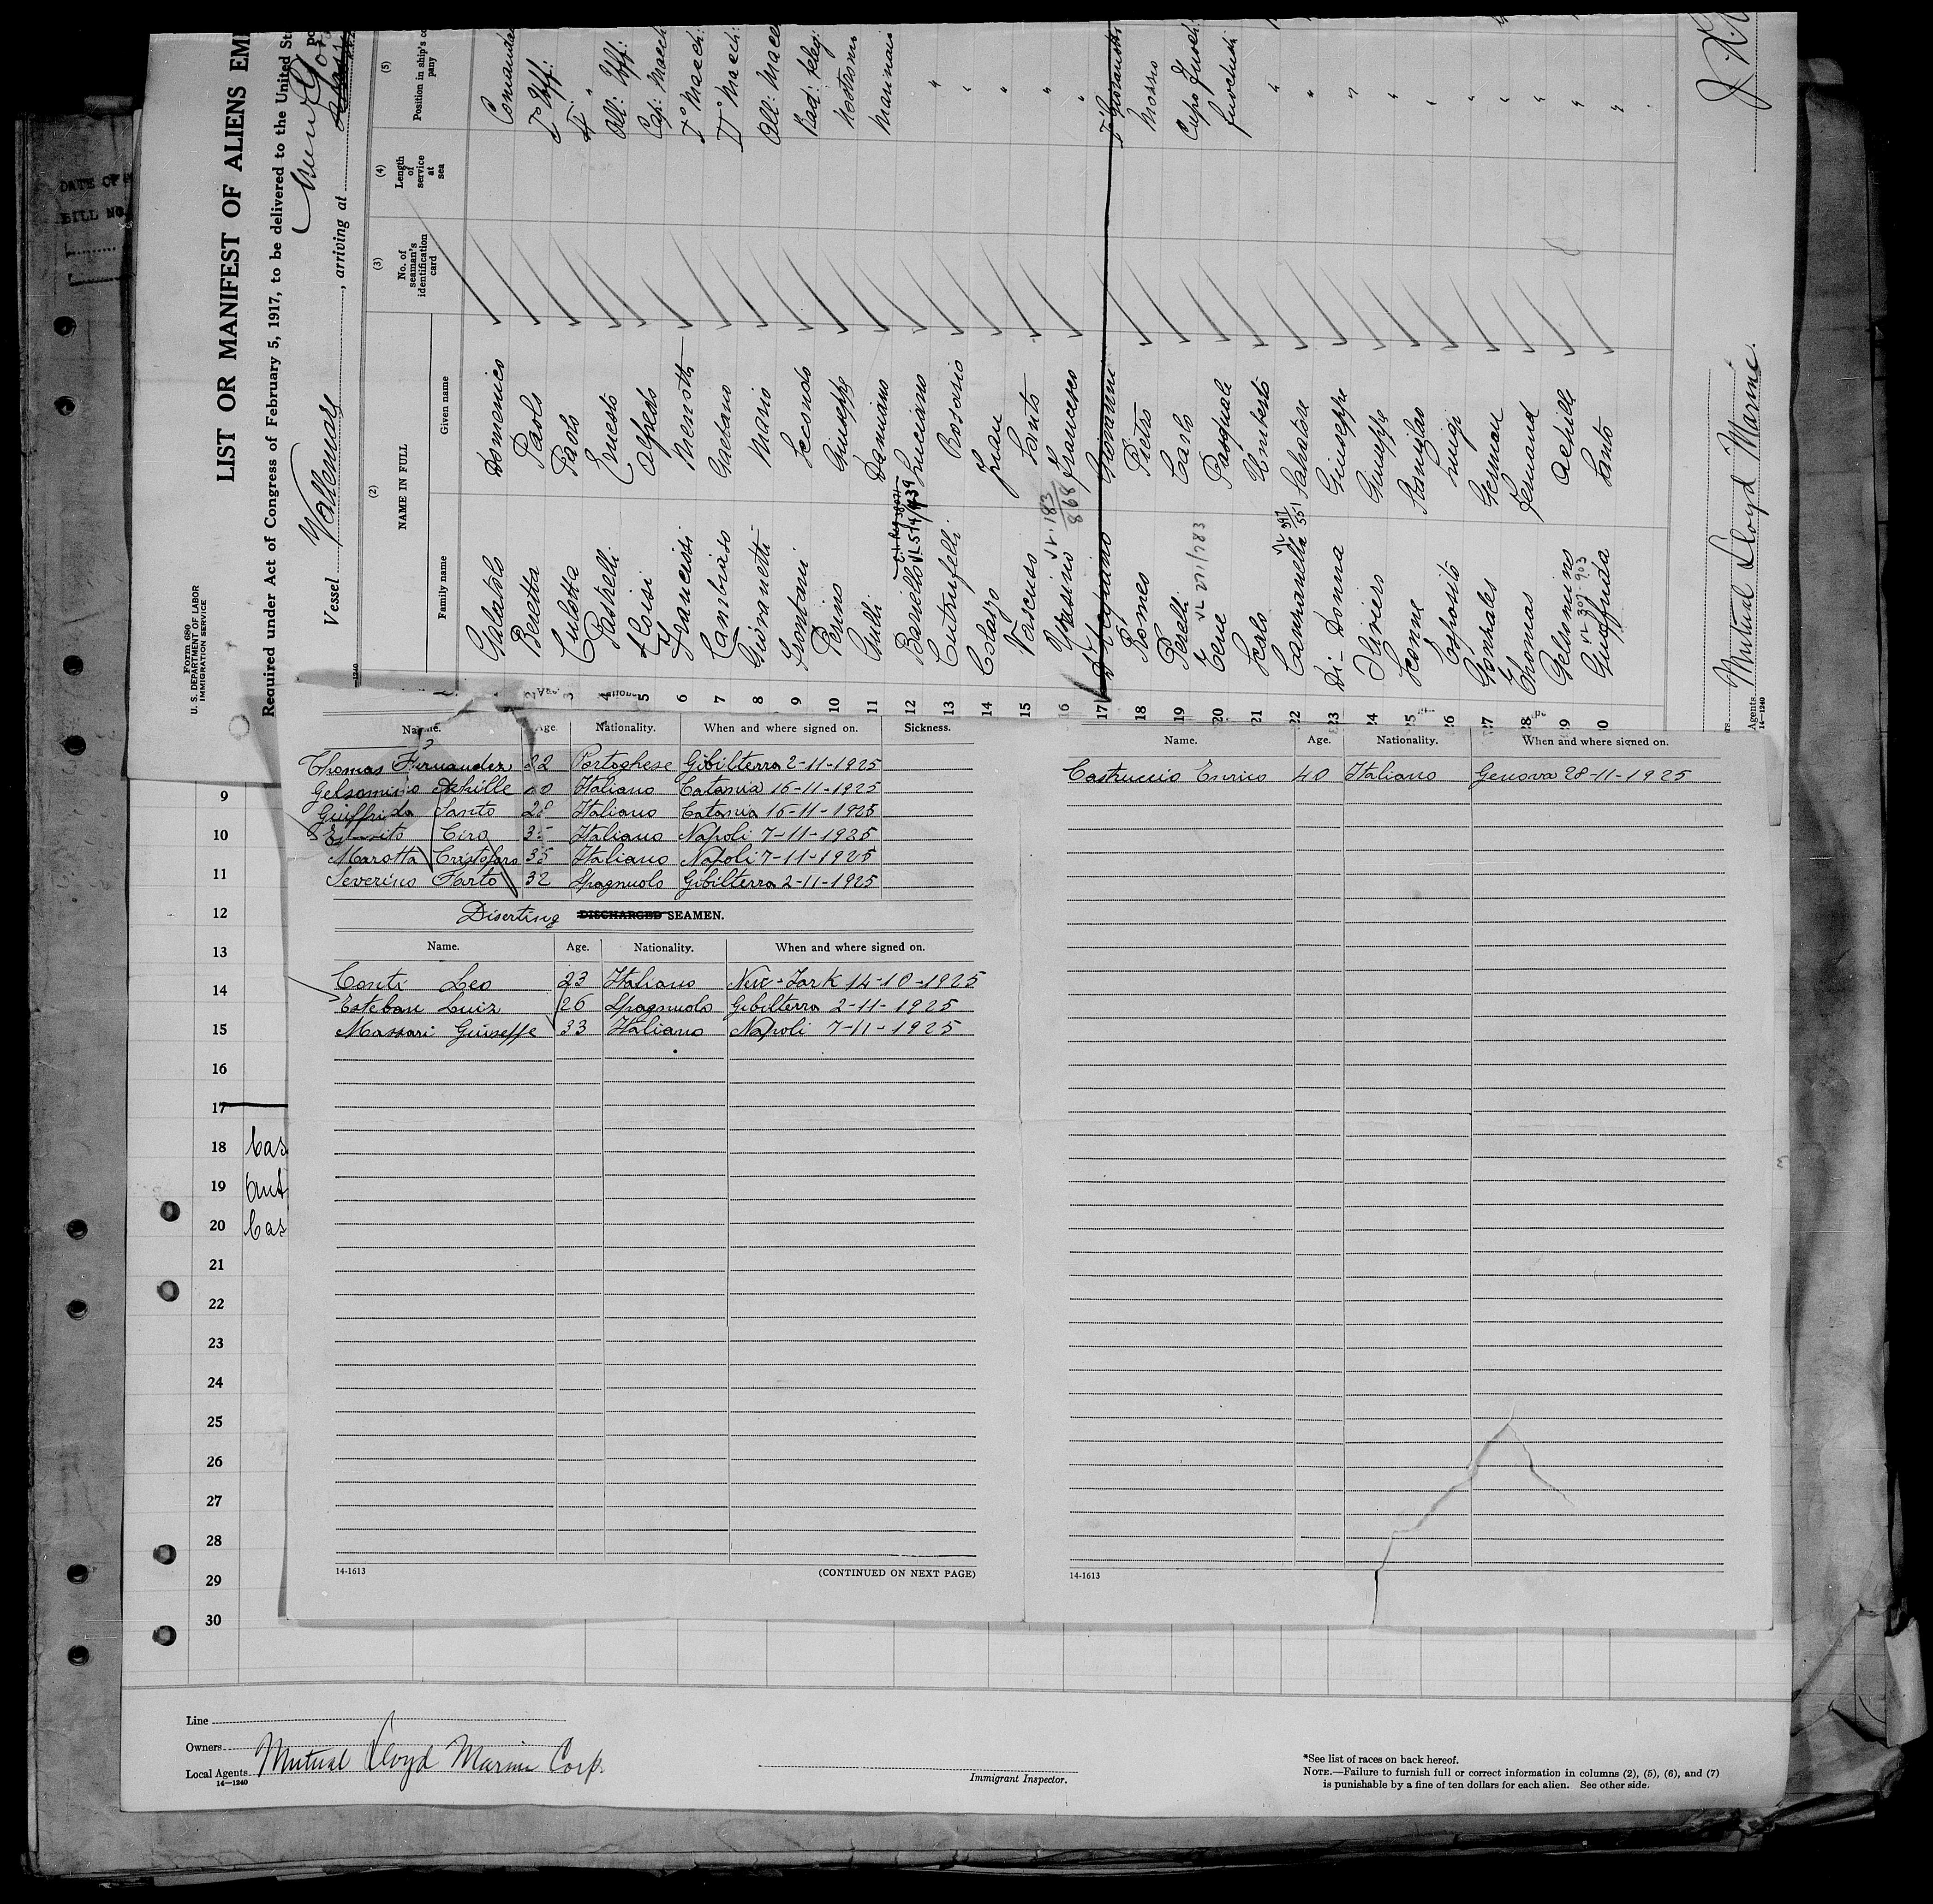 Form 680
U. S. DEPARTMENT OF LABOR
IMMIGRATION SERVICE
LIST OR MANIFEST OF ALIENS EM
Required under Act of Congress of February 5, 1917, to be delivered to the United St
Vessel Vallemare, arriving at New York
(2) (3) (4) (5)
NAME IN FULL
Family name Given name No. of seaman's identification card Length of service at sea Position in ship's co pany
Galatolo Domenico Comandan
2 Beretta Paolo I° Uff:
3 Culotta Paolo II° "
4 Pastrelli Ernesto All: Uff:
5 Aloisi Alfredo Cap: Macch
6 Francissi Menotti I° Macch:
7 Cambiaso Gaetano II° Macch:
8 Giovanetti Mario All: Macc
9 Frontani Secondo Rad: teleg:
10 Perino Giuseppe Nostromo
11 Gulli Damiano Marinaio
12 Bariello Luciano "
13 Cutrufelli Rosario "
14 Colazo Juan "
15 Vascuso Santo "
16 Ursino Francesco "
17 Giovanni
18 Romeo Pietro Mozzo
19 Perelli Carlo Capo Fuoch:
20 Cece Pasquale Fuochista
21 Scalo Umberto "
22 Cannanella Salvatore "
23 Di-Donna Giuseppe "
24 Giuseppe "
25 Stanislao "
26 Esposito Luigi "
27 Gonzales German "
28 Thomas Fernand "
29 Gelsomino Achille "
30 Giuffrida Santo "
VL 514/439
VL 183/868
VL 271/783
VL 397/551
VL 307-903
Mutual Lloyd Marine.
Agents
14-1240
Name. Age. Nationality. When and where signed on. Sickness.
Thomas Fernandez 22 Portoghese Gibilterra 2-11-1925
Gelsomino Achille Italiano Catania 16-11-1925
Giuffrida Santo 28 Italiano Catania 16-11-1925
Esposito Ciro 35 Italiano Napoli 7-11-1925
Marotta Cristoforo 35 Italiano Napoli 7-11-1925
Severino Farto 32 Spagnuolo Gibilterra 2-11-1925
Diserting DISCHARGED SEAMEN.
Name. Age. Nationality. When and where signed on.
Conti Leo 23 Italiano New-York 14-10-1925
Esteban Luiz 26 Spagnuolo Gibilterra 2-11-1925
Massari Giuseppe 33 Italiano Napoli 7-11-1925
14-1613 (CONTINUED ON NEXT PAGE)
Name. Age. Nationality. When and where signed on.
Castruccio Enrico 40 Italiano Genova 28-11-1925
14-1613
9
10
11
12
13
14
15
16
17
18 Cas
19 Ant
20 Cas
21
22
23
24
25
26
27
28
29
30
DATE OF
BILL NO.
Line
Owners
Local Agents Mutual Lloyd Marine Corp.
14-1240
Immigrant Inspector.
*See list of races on back hereof.
NOTE.—Failure to furnish full or correct information in columns (2), (5), (6), and (7)
is punishable by a fine of ten dollars for each alien. See other side.